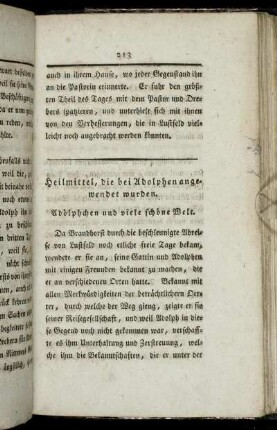 213
auch in ihrem Hause, wo jeder Gegenstand ihn
an die Pastorin erinnerte. Er fuhr den größ-
ten Theil des Tages mit dem Pastor und Dre-
hers spatzieren, und unterhielt sich mit ihnen
von den Verbesserungen, die in Lustfeld viel-
leicht noch angebracht werden könnten.
Heilmittel, die bei Adolphen ange-
wendet wurden.
Adölphchen und viele schöne Welt.
Da Brandhorst durch die beschleunigte Abrei-
se von Lustfeld noch etliche freie Tage bekam,
wendete er sie an, seine Gattin und Adolphen
mit einigen Freunden bekannt zu machen, die
er an verschiedenen Orten hatte. Bekannt mit
allen Merkwürdigkeiten der beträchtlichern Oer-
ter, durch welche der Weg gieng, zeigte er sie
seiner Reisegesellschaft, und weil Adolph in die-
se Gegend noch nicht gekommen war, verschaff-
te es ihm Unterhaltung und Zerstreuung, wel-
che ihm die Bekanntschaften, die er unter der